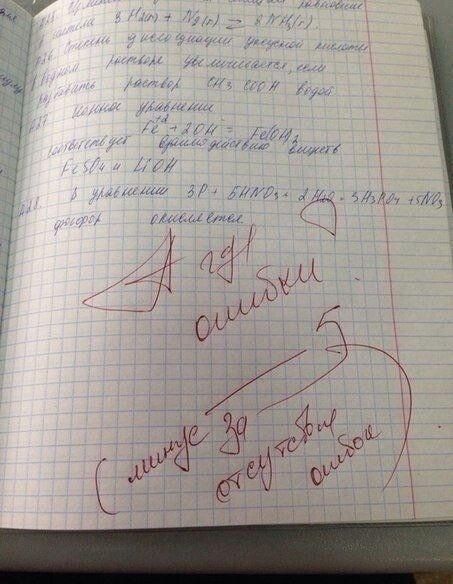 частей 3H2(г) + N2(г) = 2NH3(г).
A26 Степень диссоциации уксусной кислоты
в водном растворе увеличивается, если
разбавить раствор CH3COOH водой
A27 Ионное уравнение
Fe+2 + 2OH- = Fe(OH)2
соответствует взаимодействию веществ
FeSO4 и LiOH
A28. В уравнении 3P + 5HNO3 + 2H2O = 3H3PO4 + 5NO
фосфор окисляется
А где
ошибки
5
(минус за
отсутствие
ошибок